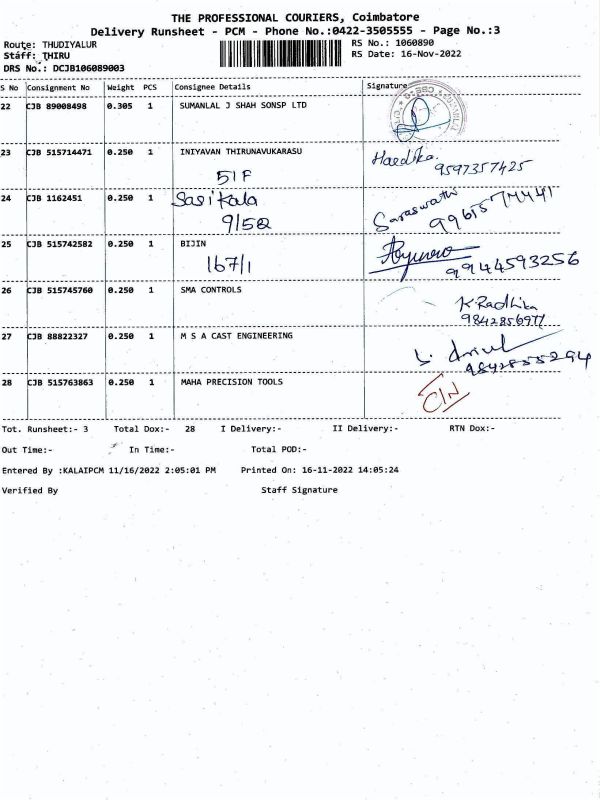 THE PROFESSIONAL COURIERS, Coimbatore
Delivery Runsheet - PCM - Phone No.:0422-3505555 - Page No.:3
Route: THUDIYALUR RS No.: 1060890
Staff: THIRU RS Date: 16-Nov-2022
DRS No.: DCJB106089003
S No Consignment No Weight PCS Consignee Details Signature
22 CJB 89008498 0.305 1 SUMANLAL J SHAH SONSP LTD
23 CJB 515714471 0.250 1 INIYAVAN THIRUNAVUKARASU Haedika
51F 9597357425
24 CJB 1162451 0.250 1 Sasikala Saraswathi
9/52 9961574441
25 CJB 515742582 0.250 1 BIJIN
167/1 9944593256
26 CJB 515745760 0.250 1 SMA CONTROLS K. Radhika
9842856977
27 CJB 88822327 0.250 1 M S A CAST ENGINEERING
9842855294
28 CJB 515763863 0.250 1 MAHA PRECISION TOOLS C/N
Tot. Runsheet:- 3 Total Dox:- 28 I Delivery:- II Delivery:- RTN Dox:-
Out Time:- In Time:- Total POD:-
Entered By :KALAIPCM 11/16/2022 2:05:01 PM Printed On: 16-11-2022 14:05:24
Verified By Staff Signature